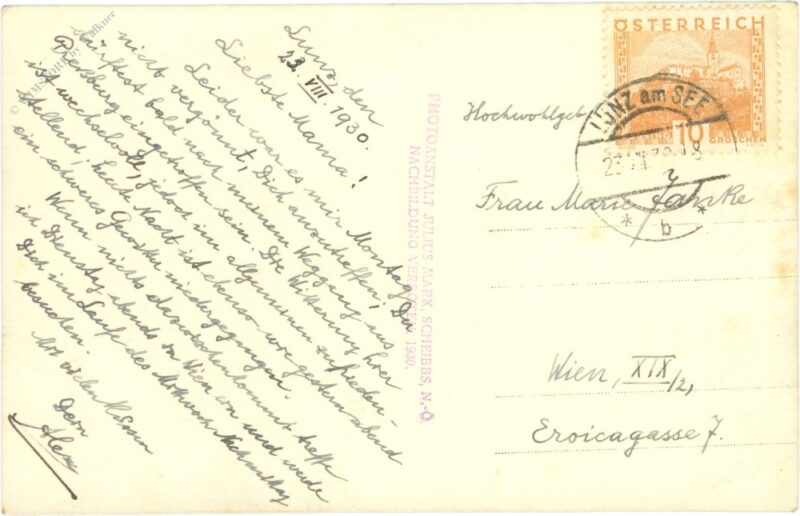 Lunz, den
23. VIII. 1930.
Liebste Mama!
Leider war es mir Montag
nicht vergönnt, Dich anzutreffen, Du
dürftest bald nach meinem Weggang aus
eingetroffen sein. Die Witterung hier
ist wechselvoll, jedoch im allgemeinen zufrieden-
stellend; heute Nacht ist ebenso wie gestern abend
ein schweres Gewitter niedergegangen.
Wenn nichts dazwischenkommt treffe
ich Dienstag abends in Wien ein und werde
Dich im Laufe des Mittwoch Nachmittag
besuchen.
Mit vielen Küssen
Dein
Alex
PHOTOANSTALT JULIUS MARK, SCHEIBBS, N.-Ö.
NACHBILDUNG VERBOTEN 1930.
ÖSTERREICH
10
GROSCHEN
LUNZ am SEE
* b *
Hochwohlgeb
Frau Marie Jahnke
Wien, XIX/2,
Eroicagasse 7.